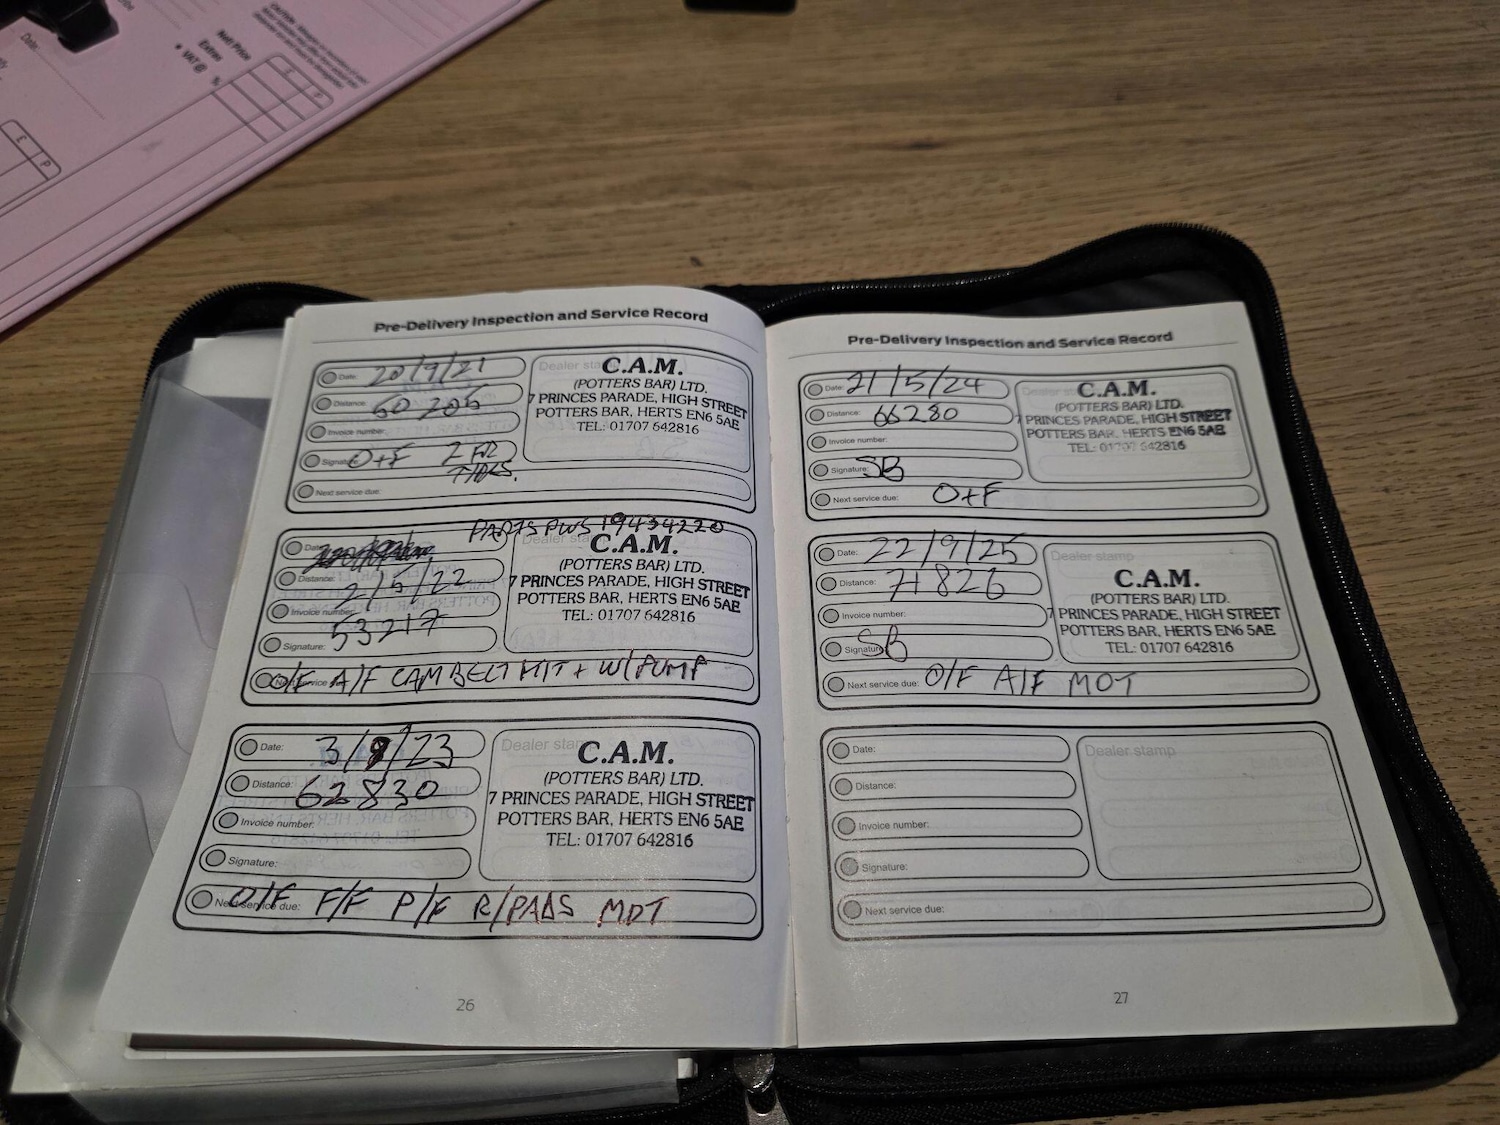 Date:
Net Price
Extras
+ VAT @ %
£ P
£ P
Pre-Delivery Inspection and Service Record
Date: 20/9/21
Distance: 60 206
Invoice number:
Signature: O+F 2 FR
TYRES.
Next service due:
Dealer stamp
C.A.M.
(POTTERS BAR) LTD.
7 PRINCES PARADE, HIGH STREET
POTTERS BAR, HERTS EN6 5AE
TEL: 01707 642816
PARTS PLUS 19434220
Date:
Distance: 2/5/22
Invoice number:
53217
Signature:
Next service due: O/F A/F CAMBELT KIT + W/PUMP
Dealer stamp
C.A.M.
(POTTERS BAR) LTD.
7 PRINCES PARADE, HIGH STREET
POTTERS BAR, HERTS EN6 5AE
TEL: 01707 642816
Date: 3/8/23
Distance: 62830
Invoice number:
Signature:
Next service due: O/F F/F P/F R/PADS MOT
Dealer stamp
C.A.M.
(POTTERS BAR) LTD.
7 PRINCES PARADE, HIGH STREET
POTTERS BAR, HERTS EN6 5AE
TEL: 01707 642816
26
Pre-Delivery Inspection and Service Record
Date: 21/5/24
Distance: 66280
Invoice number:
Signature: SB
Next service due: O+F
C.A.M.
(POTTERS BAR) LTD.
7 PRINCES PARADE, HIGH STREET
POTTERS BAR, HERTS EN6 5AE
TEL: 01707 642816
Date: 22/9/25
Distance: 71826
Invoice number:
Signature: SB
Next service due: O/F A/F MOT
Dealer stamp
C.A.M.
(POTTERS BAR) LTD.
7 PRINCES PARADE, HIGH STREET
POTTERS BAR, HERTS EN6 5AE
TEL: 01707 642816
Date:
Distance:
Invoice number:
Signature:
Next service due:
Dealer stamp
27